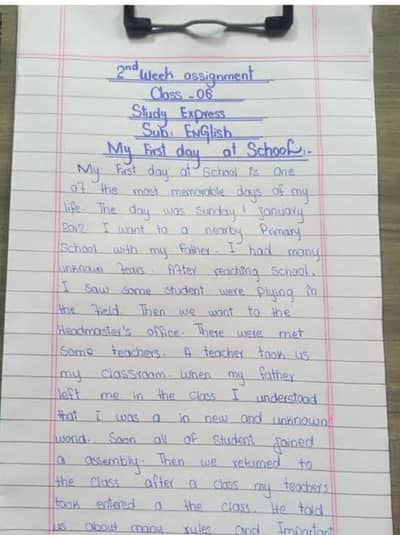 2nd Week assignment
Class - 06
Study Express
Sub: English
My First day at School:-
My First day at School is one
of the most memorable days of my
life. The day was Sunday 1 January
2012 I want to a nearby Primary
School with my Father. I had many
unknown Fears. After reaching School,
I Saw Some Student were plying in
the Field. Then we want to the
Headmaster's office. There were met
Some teachers. A teacher took us
my classroom. When my father
left me in the class I understood
that I was a in new and unknown
world. Soon all of Student joined
a assembly. Then we returned to
the class after a class my teachers
took entered a the class. He told
us about many rules and Important